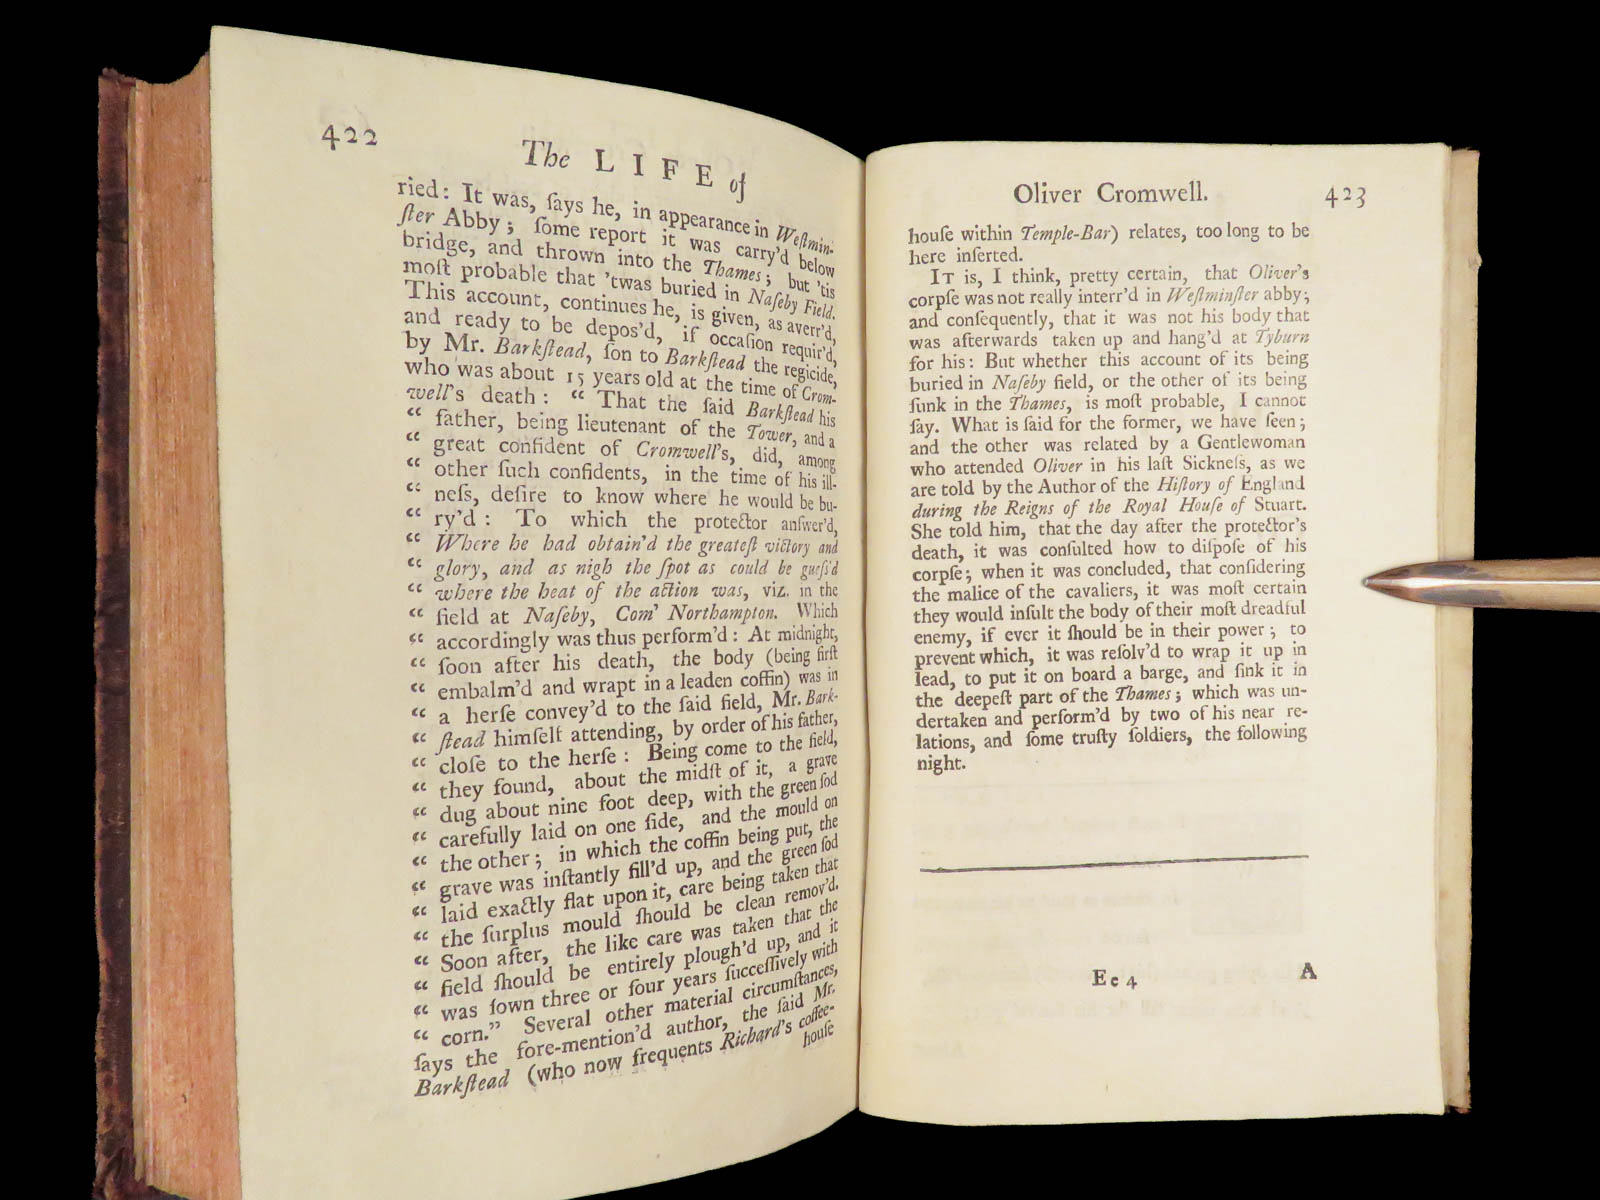 422
The LIFE of
ried: It was, ſays he, in appearance in Weſtmin-
ſter Abby; ſome report it was carry'd below
bridge, and thrown into the Thames; but 'tis
moſt probable that 'twas buried in Naſeby Field.
This account, continues he, is given, as averr'd,
and ready to be depos'd, if occaſion requir'd,
by Mr. Barkſtead, ſon to Barkſtead the regicide,
who was about 15 years old at the time of Crom-
well's death: “ That the ſaid Barkſtead his
“ father, being lieutenant of the Tower, and a
“ great confident of Cromwell's, did, among
“ other ſuch confidents, in the time of his ill-
“ neſs, deſire to know where he would be bu-
“ ry'd: To which the protector anſwer'd,
“ Where he had obtain'd the greateſt victory and
“ glory, and as nigh the ſpot as could be gueſs'd
“ where the heat of the action was, viz. in the
“ field at Naſeby, Com' Northampton. Which
“ accordingly was thus perform'd: At midnight,
“ ſoon after his death, the body (being firſt
“ embalm'd and wrapt in a leaden coffin) was in
“ a herſe convey'd to the ſaid field, Mr. Bark-
“ ſtead himſelf attending, by order of his father,
“ cloſe to the herſe: Being come to the field,
“ they found, about the midſt of it, a grave
“ dug about nine foot deep, with the green ſod
“ carefully laid on one ſide, and the mould on
“ the other; in which the coffin being put, the
“ grave was inſtantly fill'd up, and the green ſod
“ laid exactly flat upon it, care being taken that
“ the ſurplus mould ſhould be clean remov'd.
“ Soon after, the like care was taken that the
“ field ſhould be entirely plough'd up, and it
“ was ſown three or four years ſucceſſively with
“ corn.” Several other material circumſtances,
ſays the fore-mention'd author, the ſaid Mr.
Barkſtead (who now frequents Richard's coffee-
houſe
Oliver Cromwell. 423
houſe within Temple-Bar) relates, too long to be
here inſerted.
IT is, I think, pretty certain, that Oliver's
corpſe was not really interr'd in Weſtminſter abby;
and conſequently, that it was not his body that
was afterwards taken up and hang'd at Tyburn
for his: But whether this account of its being
buried in Naſeby field, or the other of its being
ſunk in the Thames, is moſt probable, I cannot
ſay. What is ſaid for the former, we have ſeen;
and the other was related by a Gentlewoman
who attended Oliver in his laſt Sickneſs, as we
are told by the Author of the Hiſtory of England
during the Reigns of the Royal Houſe of Stuart.
She told him, that the day after the protector's
death, it was conſulted how to diſpoſe of his
corpſe; when it was concluded, that conſidering
the malice of the cavaliers, it was moſt certain
they would inſult the body of their moſt dreadful
enemy, if ever it ſhould be in their power; to
prevent which, it was reſolv'd to wrap it up in
lead, to put it on board a barge, and ſink it in
the deepeſt part of the Thames; which was un-
dertaken and perform'd by two of his near re-
lations, and ſome truſty ſoldiers, the following
night.
Ee 4 A